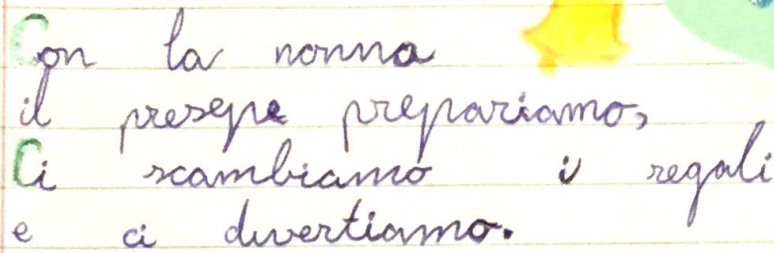 Con la nonna
il presepe prepariamo,
Ci scambiamo i regali
e ci divertiamo.